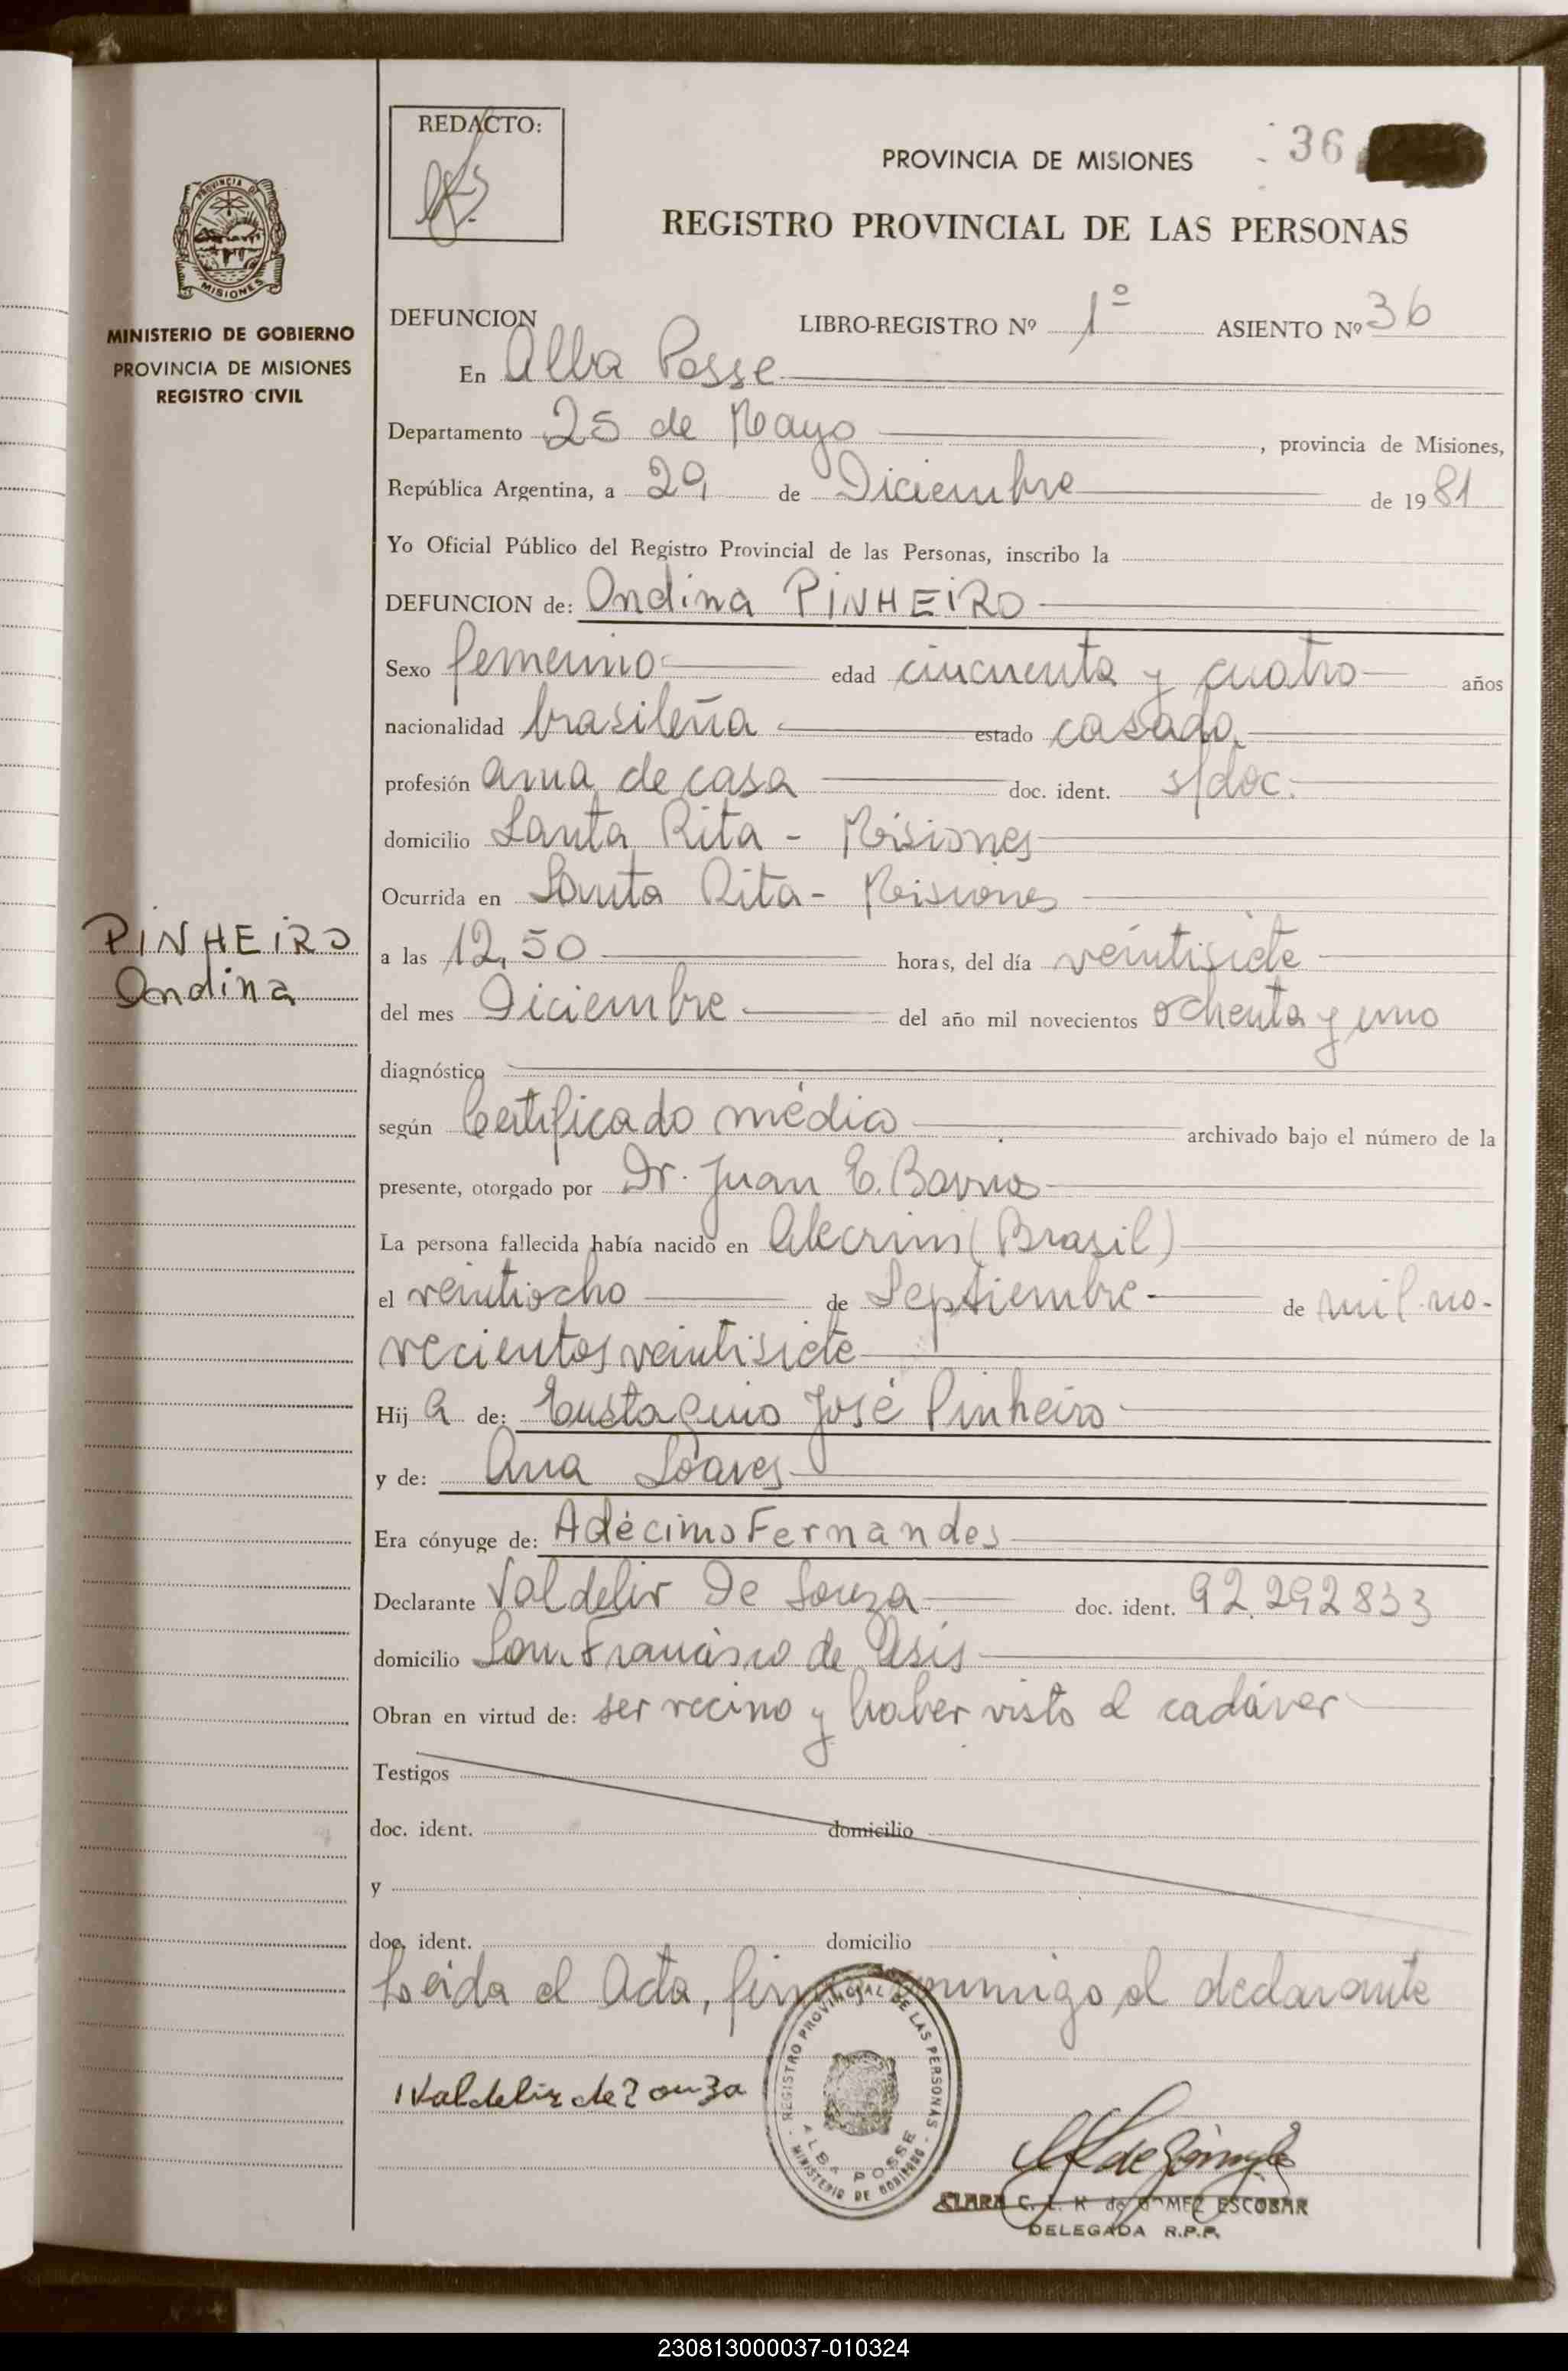 REDACTO:
PROVINCIA DE MISIONES
36
REGISTRO PROVINCIAL DE LAS PERSONAS
PROVINCIA DE
MISIONES
MINISTERIO DE GOBIERNO
PROVINCIA DE MISIONES
REGISTRO CIVIL
DEFUNCION LIBRO-REGISTRO Nº 1º ASIENTO Nº 36
En Alba Posse
Departamento 25 de Mayo, provincia de Misiones,
República Argentina, a 29 de Diciembre de 1981
Yo Oficial Público del Registro Provincial de las Personas, inscribo la
DEFUNCION de: Ondina PINHEIRO
Sexo femenino edad cincuenta y cuatro años
nacionalidad brasileña estado casada
profesión ama de casa doc. ident. s/doc.
domicilio Santa Rita - Misiones
Ocurrida en Santa Rita - Misiones
PINHEIRO
Ondina
a las 12,50 horas, del día veintisiete
del mes Diciembre del año mil novecientos ochenta y uno
diagnóstico
según Certificado médico archivado bajo el número de la
presente, otorgado por Dr. Juan E.
La persona fallecida había nacido en Alecrim (Brasil)
el veintiocho de Septiembre de mil no-
vecientos veintisiete
Hij a de: José Pinheiro
y de: Ana Soares
Era cónyuge de: Adécimo Fernandes
Declarante Valdelir De Souza doc. ident. 92.292833
domicilio San Francisco de Asis
Obran en virtud de: ser vecino y haber visto el cadáver
Testigos
doc. ident. domicilio
y
doc. ident. domicilio
Leida el Acta, firma conmigo el declarante
Valdelir de Souza
REGISTRO PROVINCIAL DE LAS PERSONAS
ALBA POSSE
MINISTERIO DE GOBIERNO
CLARA C. L. K de GOMEZ ESCOBAR
DELEGADA R.P.P.
230813000037-010324